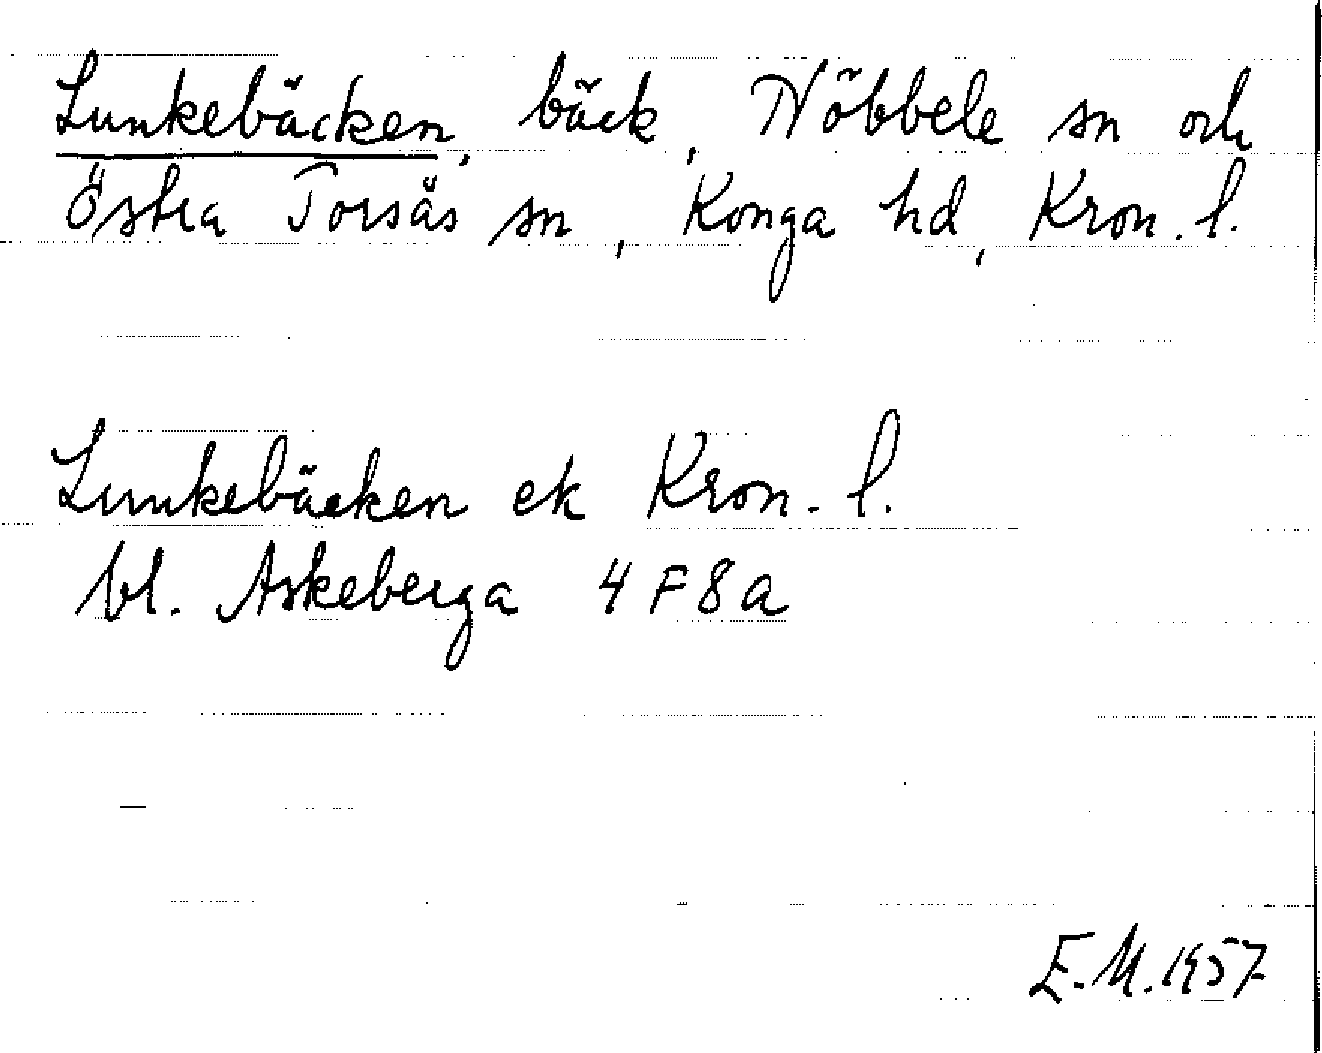 Lunkebäcken, bäck, Nöbbele sn och
Östra Torsås sn, Konga hd, Kron. l.
Lunkebäcken ek Kron. l.
bl. Askeberga 4 F 8 a
E. M. 1957